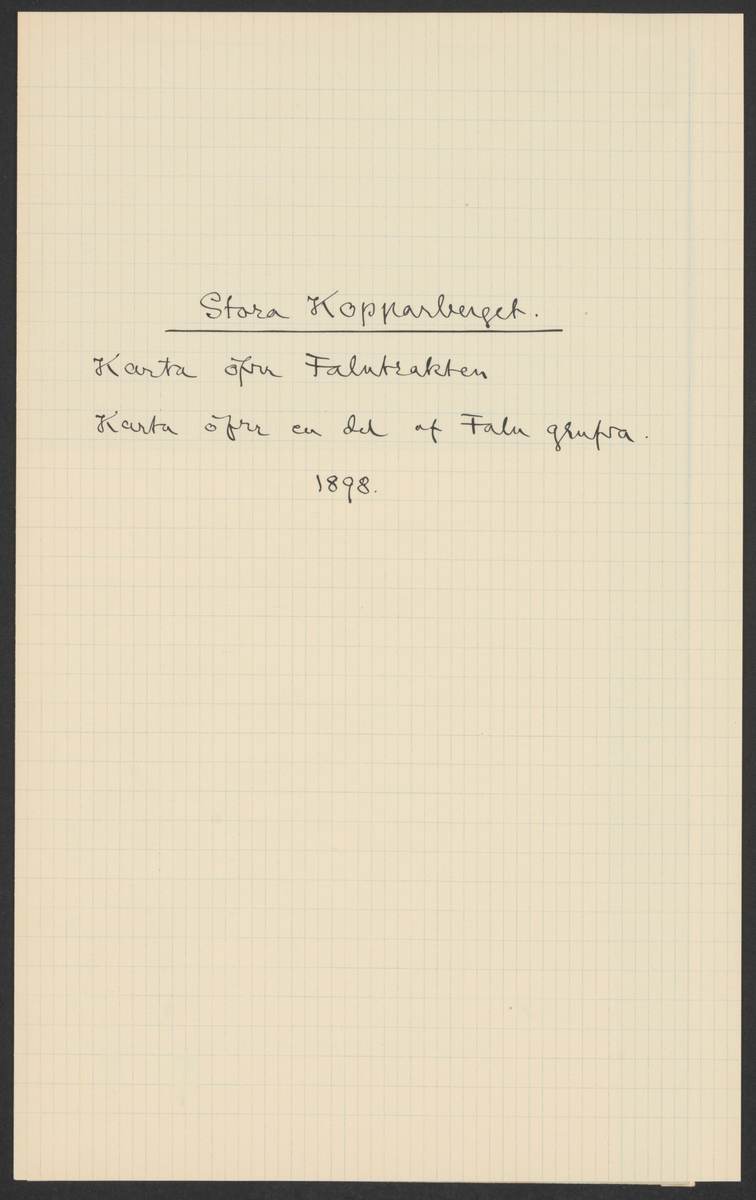 Stora Kopparberget.
Karta öfver Falutrakten
Karta öfver en del af Falu grufva.
1898.